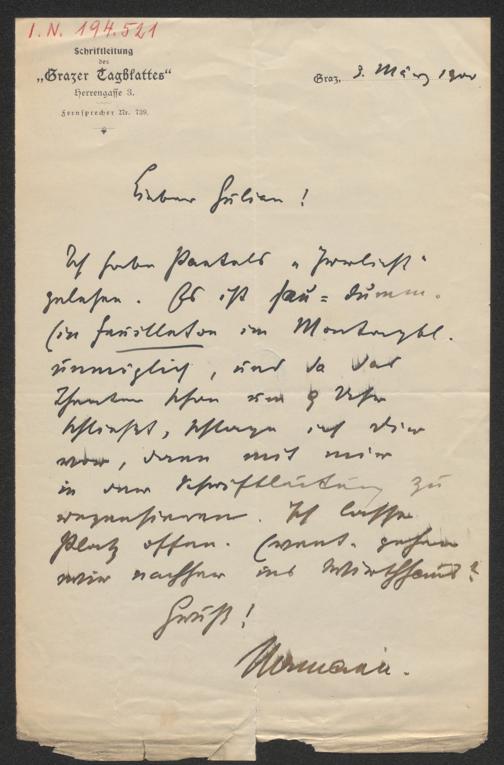 I. N. 194.521
Schriftleitung
des
„Grazer Tagblattes“
Herrengasse 3.
Fernsprecher Nr. 739.
Graz, 3. März 1900
Lieber Julian!
Ich habe „Irrlicht“
gelesen. Es ist sau=dumm.
Ein Feuilleton im Montagbl.
unmöglich, und da das
Theater schon um 9 Uhr
schließt, schlage ich Dir
vor, dann mit mir
in der Schriftleitung zu
rezensieren. Ich lasse
Platz offen. Event. gehen
wir nachher ins Wirthshaus?
Gruß!